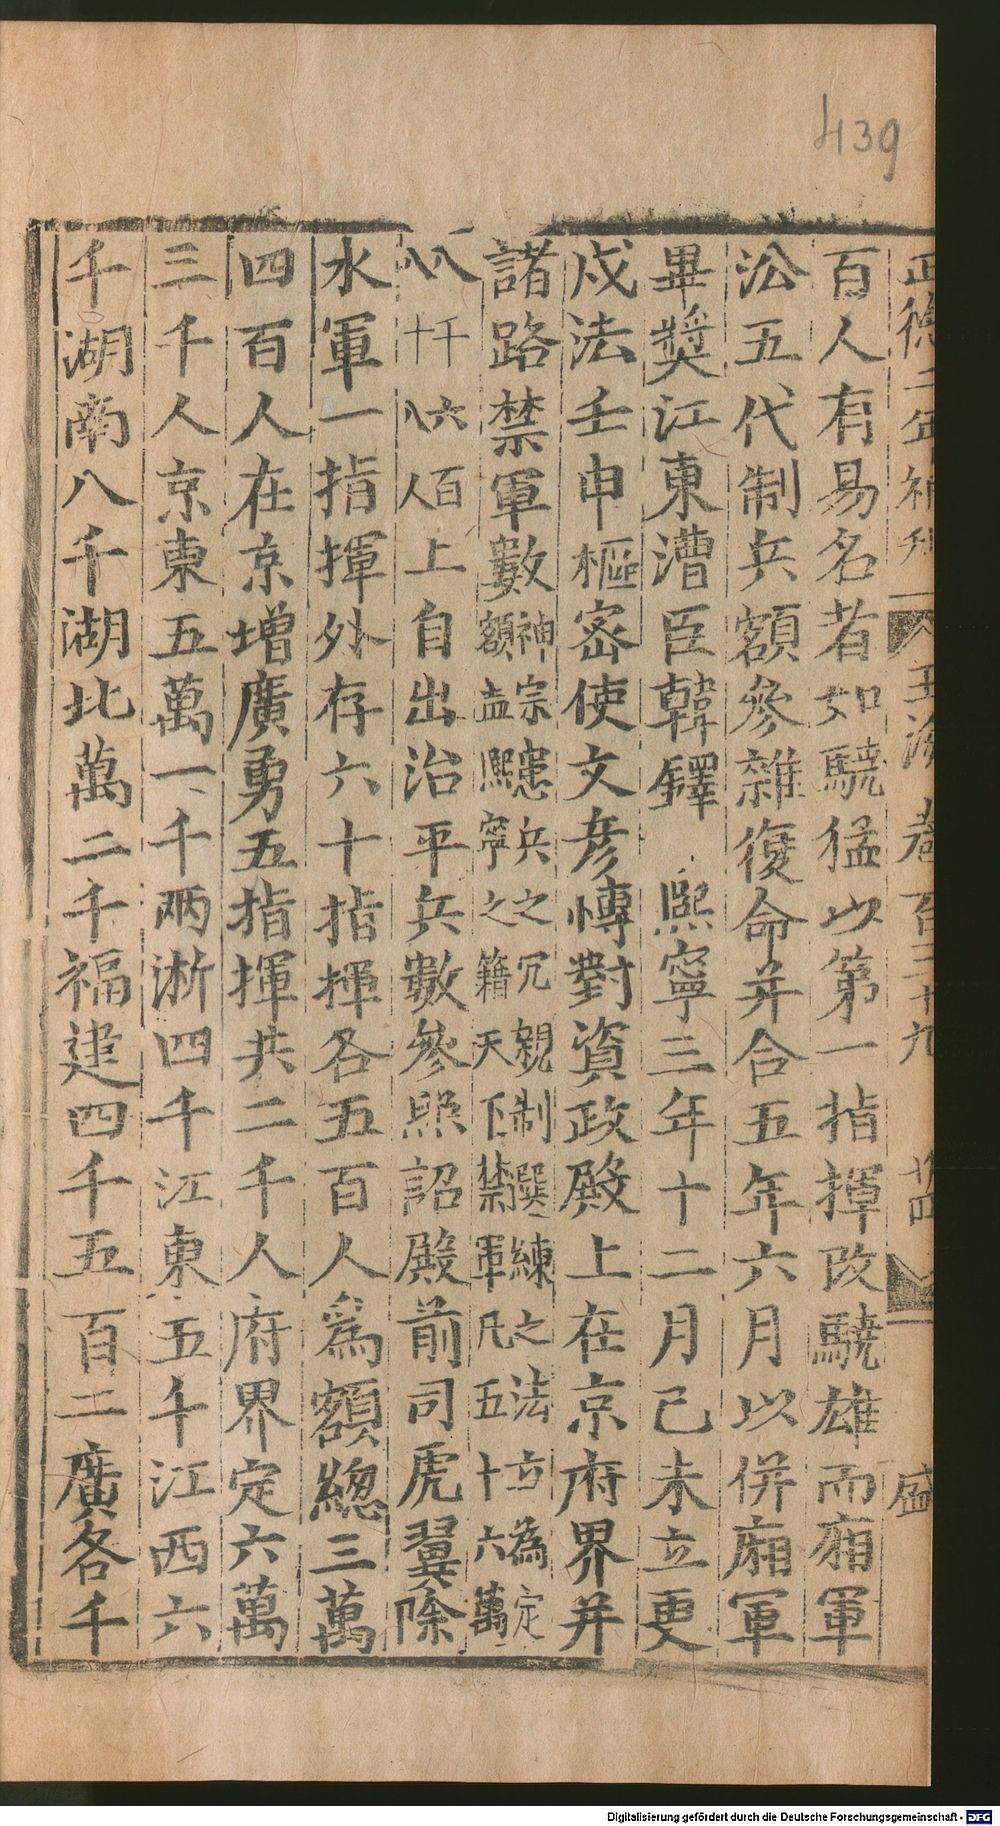 439
正德二年補刊 玉海卷百三十九 廿四 盛
百人有易名者如驍猛以第一指揮改驍雄而廂軍
㳂五代制兵額參雜復命并合五年六月以併廂軍
畢奬江東漕臣韓鐸 熙寧三年十二月己未立更
戍法壬申樞宻使文彦愽對資政殿上在京府界并
諸路禁軍數神宗患兵之冗親制選練之法立為定
額盖熙寧之籍天下禁軍凡五十六萬
八千六百
八十八人上自出治平兵數參照詔殿前司虎翼除
水軍一指揮外存六十指揮各五百人為額緫三萬
四百人在京增廣勇五指揮共二千人府界定六萬
三千人京東五萬一千兩淅四千江東五千江西六
千湖南八千湖北萬二千福建四千五百二廣各千
Digitalisierung gefördert durch die Deutsche Forschungsgemeinschaft - DFG